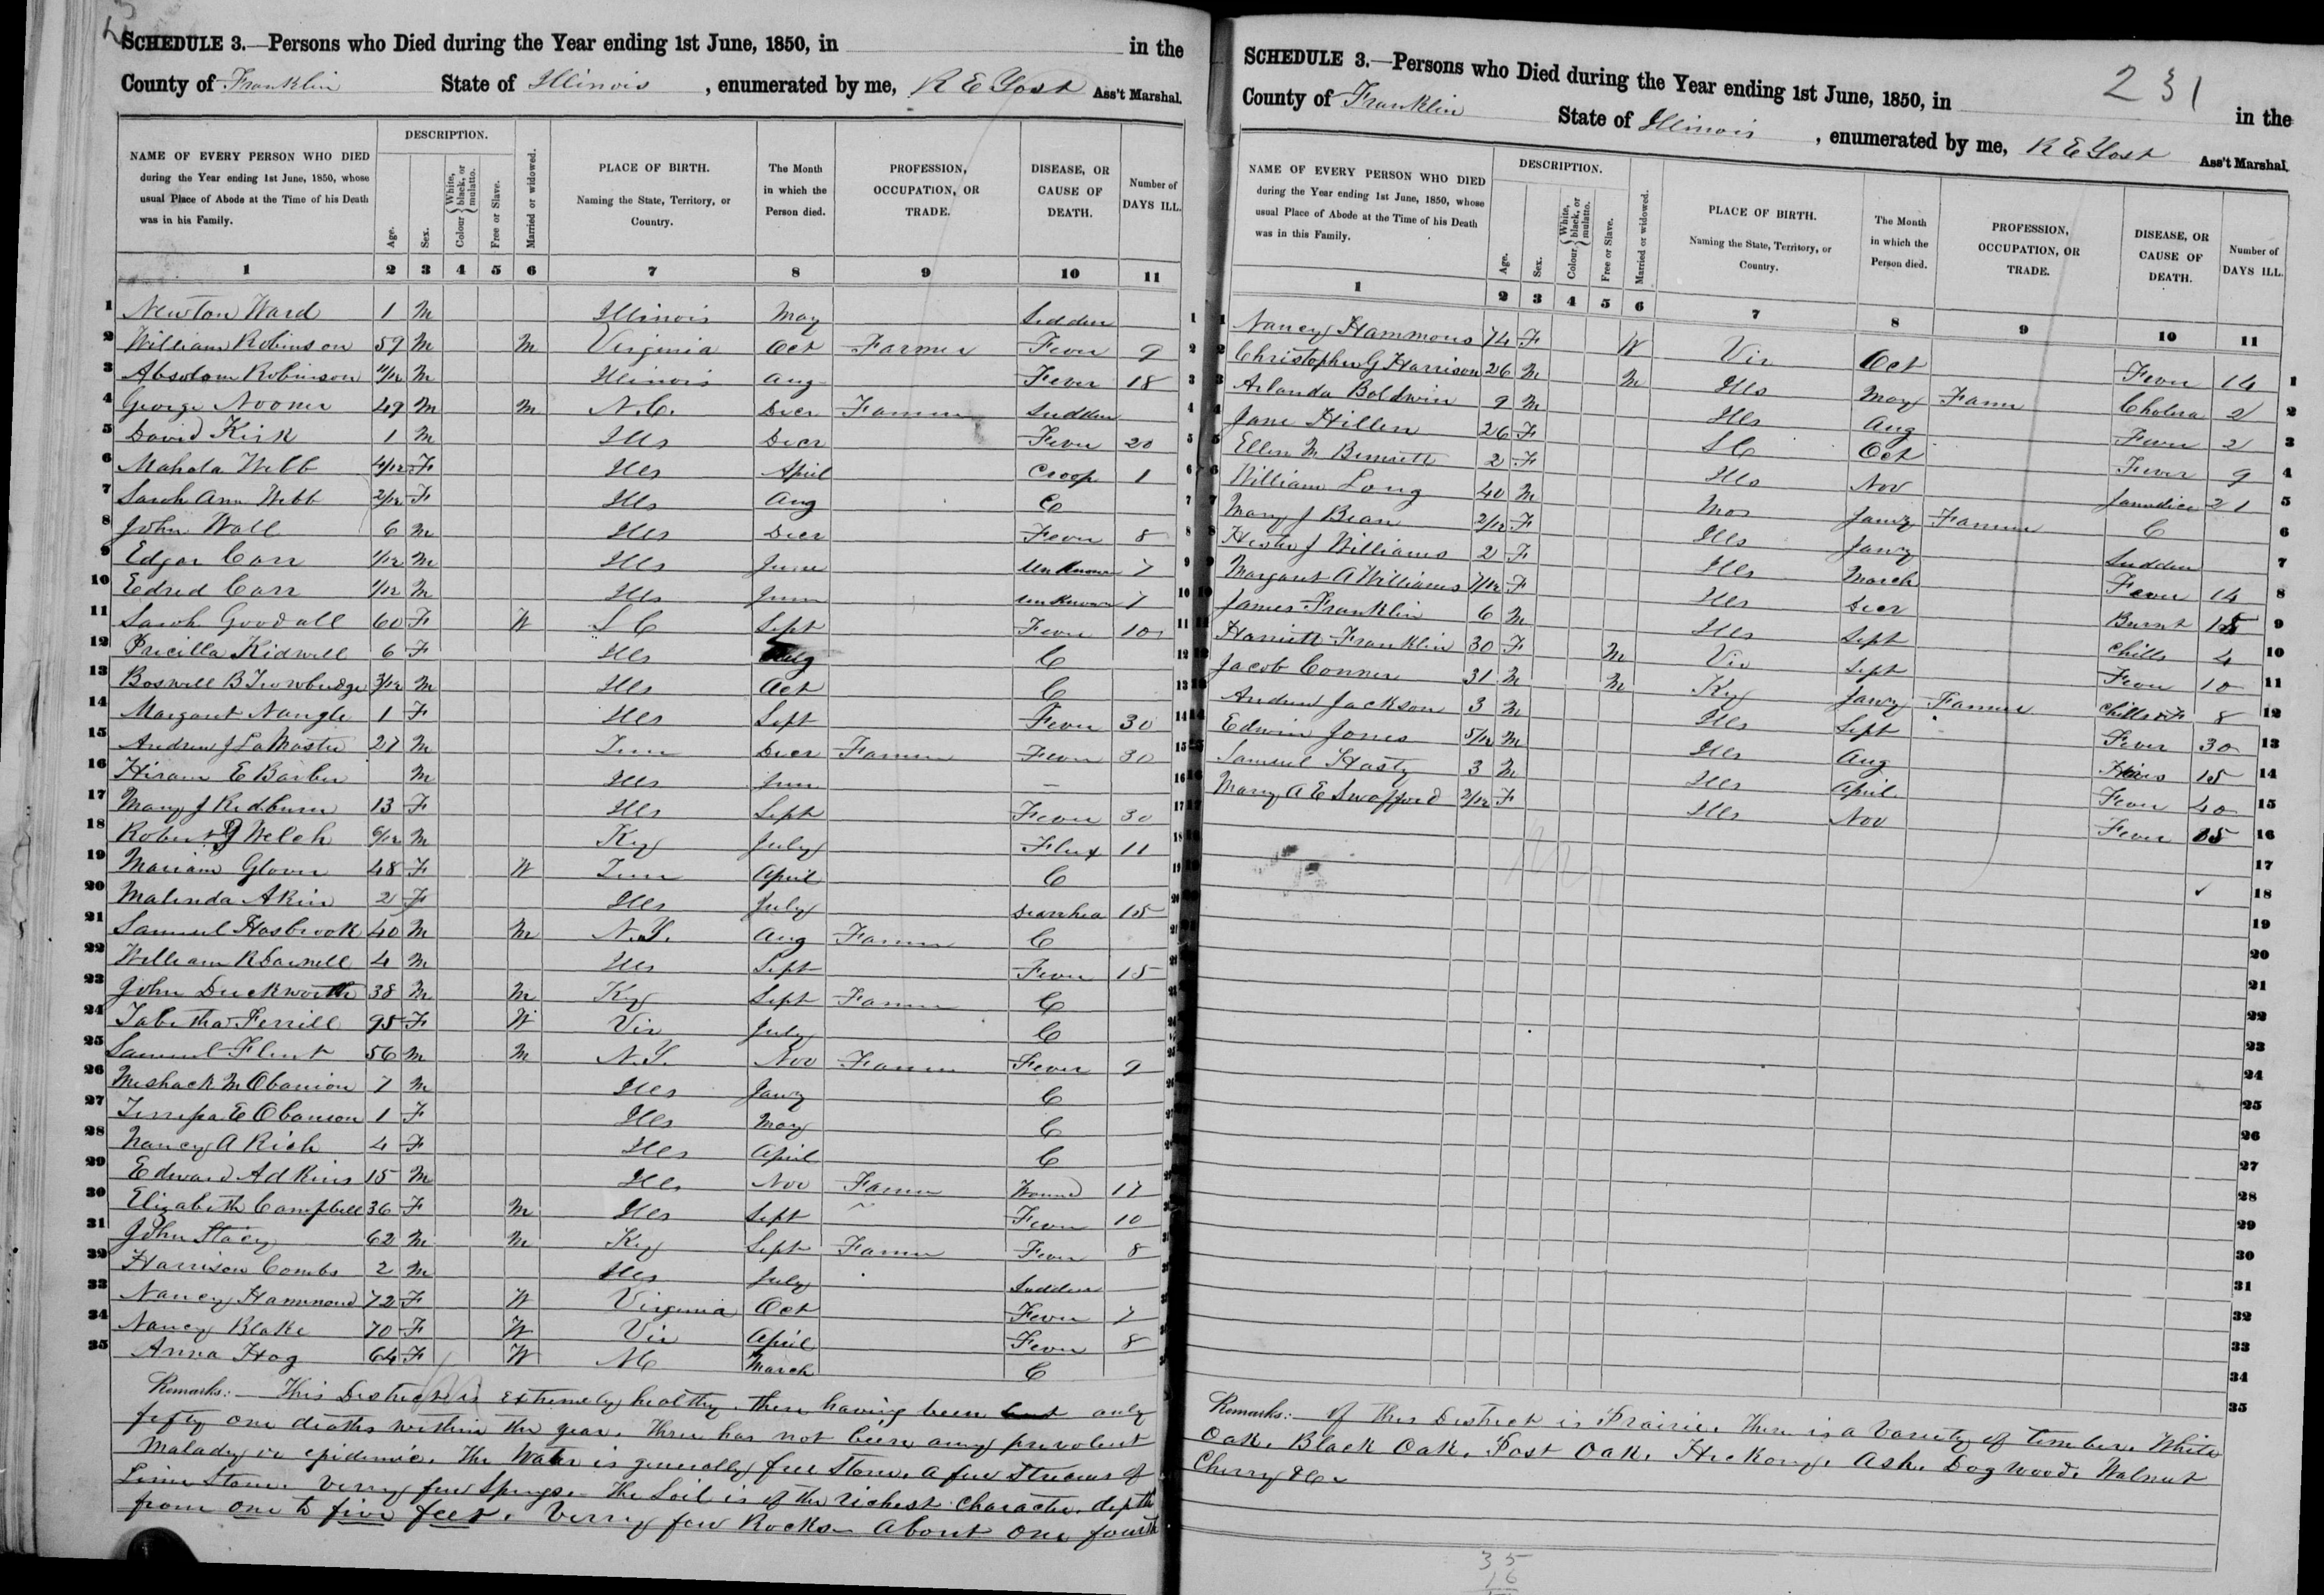 SCHEDULE 3.—Persons who Died during the Year ending 1st June, 1850, in in the
County of Franklin State of Illinois, enumerated by me, R E Yost Ass't Marshal.
NAME OF EVERY PERSON WHO DIED during the Year ending 1st June, 1850, whose usual Place of Abode at the Time of his Death was in his Family.
DESCRIPTION.
Age. Sex. Colour { White, black, or mulatto. Free or Slave. Married or widowed.
PLACE OF BIRTH. Naming the State, Territory, or Country.
The Month in which the Person died.
PROFESSION, OCCUPATION, OR TRADE.
DISEASE, OR CAUSE OF DEATH.
Number of DAYS ILL.
1 2 3 4 5 6 7 8 9 10 11
1 Newton Ward 1 M Illinois May Sudden 1
2 William Robinson 59 M M Virginia Oct Farmer Fever 9 2
3 Absolom Robinson 4/12 M Illinois Aug Fever 18 3
4 George Nooner 49 M M N.C. Decr Farmer Sudden 4
5 David Kirk 1 M Ills Decr Fever 20 5
6 Mahala Webb 4/12 F Ills April Croop 1 6
7 Sarah Ann Webb 2/12 F Ills Aug C 7
8 John Wall 6 M Ills Decr Fever 8 8
9 Edgar Carr 1/12 M Ills June Unknown 7 9
10 Edred Carr 1/12 M Ills June Unknown 7 10
11 Sarah Goodall 60 F W S C Sept Fever 10 11
12 Pricilla Kidwell 6 F Ills Aug C 12
13 Boswell B Trowbridge 3/12 M Ills Oct C 13
14 Margaret Nangle 1 F Ills Sept Fever 30 14
15 Andrew J LaMaster 27 M Tenn Decr Farmer Fever 30 15
16 Hiram E Barber M Ills June — 16
17 Mary J Redburn 13 F Ills Sept Fever 30 17
18 Robert Welch 6/12 M Ky July Flux 11 18
19 Mariam Glover 48 F W Tenn April C 19
20 Malinda Akin 2 F Ills July Diarrhea 15
21 Samuel Hasbrook 40 M M N.Y. Aug Farmer C
22 William R Darnell 4 M Ills Sept Fever 15
23 John Duckworth 38 M M Ky Sept Farmer C
24 Tabitha Ferrill 95 F W Vir July C
25 Samuel Flint 56 M M N.Y. Nov Farmer Fever 9
26 Meshack M Obanion 7 M Ills Jany C
27 E Obanion 1 F Ills May C
28 Nancy A Rich 4 F Ills April C
29 Edward Adkins 15 M Ills Nov Farmer Wound 17
30 Elizabeth Campbell 36 F M Ills Sept " Fever 10
31 John Stacy 62 M M Ky Sept Farmer Fever 8
32 Harrison Combs 2 M Ills July Sudden
33 Nancy Hammond 72 F W Virginia Oct Fever 7
34 Nancy Blake 70 F W Vir April Fever 8
35 Anna Hog 64 F W N C March C
Remarks:— This District is extremely healthy. there having been but only
fifty one deaths within the year. There has not been any prevolent
Malady or epidemic. The Water is generally free Stone. a few Streams of
Lime Stone. Verry few Springs. The Soil is of the richest Character. depth
from one to five feet. Verry few Rocks— About one fourth
SCHEDULE 3.—Persons who Died during the Year ending 1st June, 1850, in in the
231
County of Franklin State of Illinois, enumerated by me, R E Yost Ass't Marshal.
NAME OF EVERY PERSON WHO DIED during the Year ending 1st June, 1850, whose usual Place of Abode at the Time of his Death was in this Family.
DESCRIPTION.
Age. Sex. Colour { White, black, or mulatto. Free or Slave. Married or widowed.
PLACE OF BIRTH. Naming the State, Territory, or Country.
The Month in which the Person died.
PROFESSION, OCCUPATION, OR TRADE.
DISEASE, OR CAUSE OF DEATH.
Number of DAYS ILL.
1 2 3 4 5 6 7 8 9 10 11
1 Nancy Hammons 74 F W Vir Oct Fever 14 1
2 Christopher G Harrison 26 M M Ills May Farmr Cholera 2 2
3 Arlanda Boldwin 9 M Ills Aug Fever 2 3
4 Jane Hillen 26 F S C Oct Fever 9 4
5 Ellen M Bennett 2 F Ills Nov Jaundice 21 5
6 William Long 40 M Mos Jany Farmer C 6
7 Mary J Bean 2/12 F Ills Jany Sudden 7
8 Hester J Williams 2 F Ills March Fever 14 8
9 Margaret A Williams 7/12 F Ills Decr Burnt 15 9
10 James Franklin 6 M Ills Sept Chills 4 10
11 Harriett Franklin 30 F M Vir Sept Fever 10 11
12 Jacob Conner 31 M M Ky Jany Farmer Chills & F 8 12
13 Andrew Jackson 3 M Ills Sept Fever 30 13
14 Edwin Jones 5/12 M Ills Aug Hives 15 14
15 Samuel Hasty 3 M Ills April Fever 40 15
16 Mary A E Swofford 2/12 F Ills Nov Fever 15 16
17
18
19
20
21
22
23
24
25
26
27
28
29
30
31
32
33
34
35
Remarks:— of this District is Prairie. There is a Variety of timber. White
Oak. Black Oak. Post Oak. Hickory. Ash. Dogwood. Walnut
Cherry &c
35
16